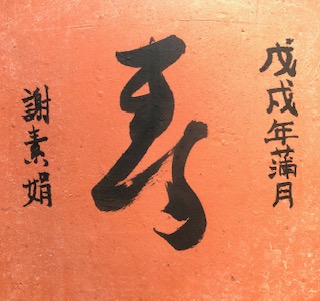 戊戌年蒲月
寿
謝素娟